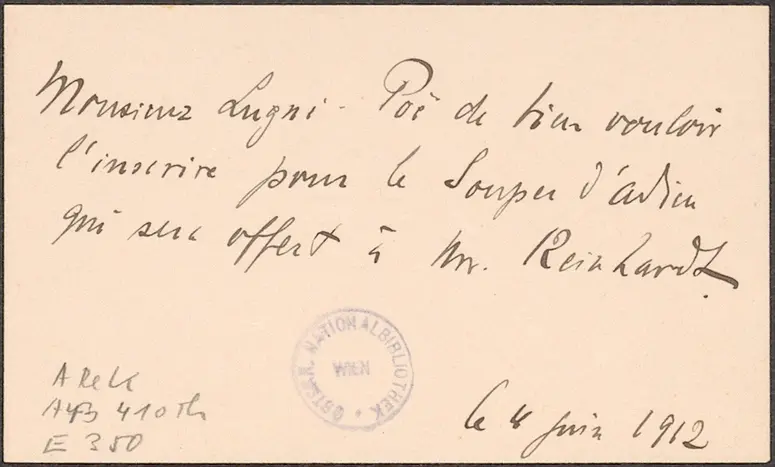 Monsieur Lugné-Poë de bien vouloir
l'inscrire pour le Souper d'adieu
qui sera offert à Mr. Reinhardt.
OESTERR. NATIONALBIBLIOTHEK
WIEN
410 Th
E 350
le 8 juin 1912